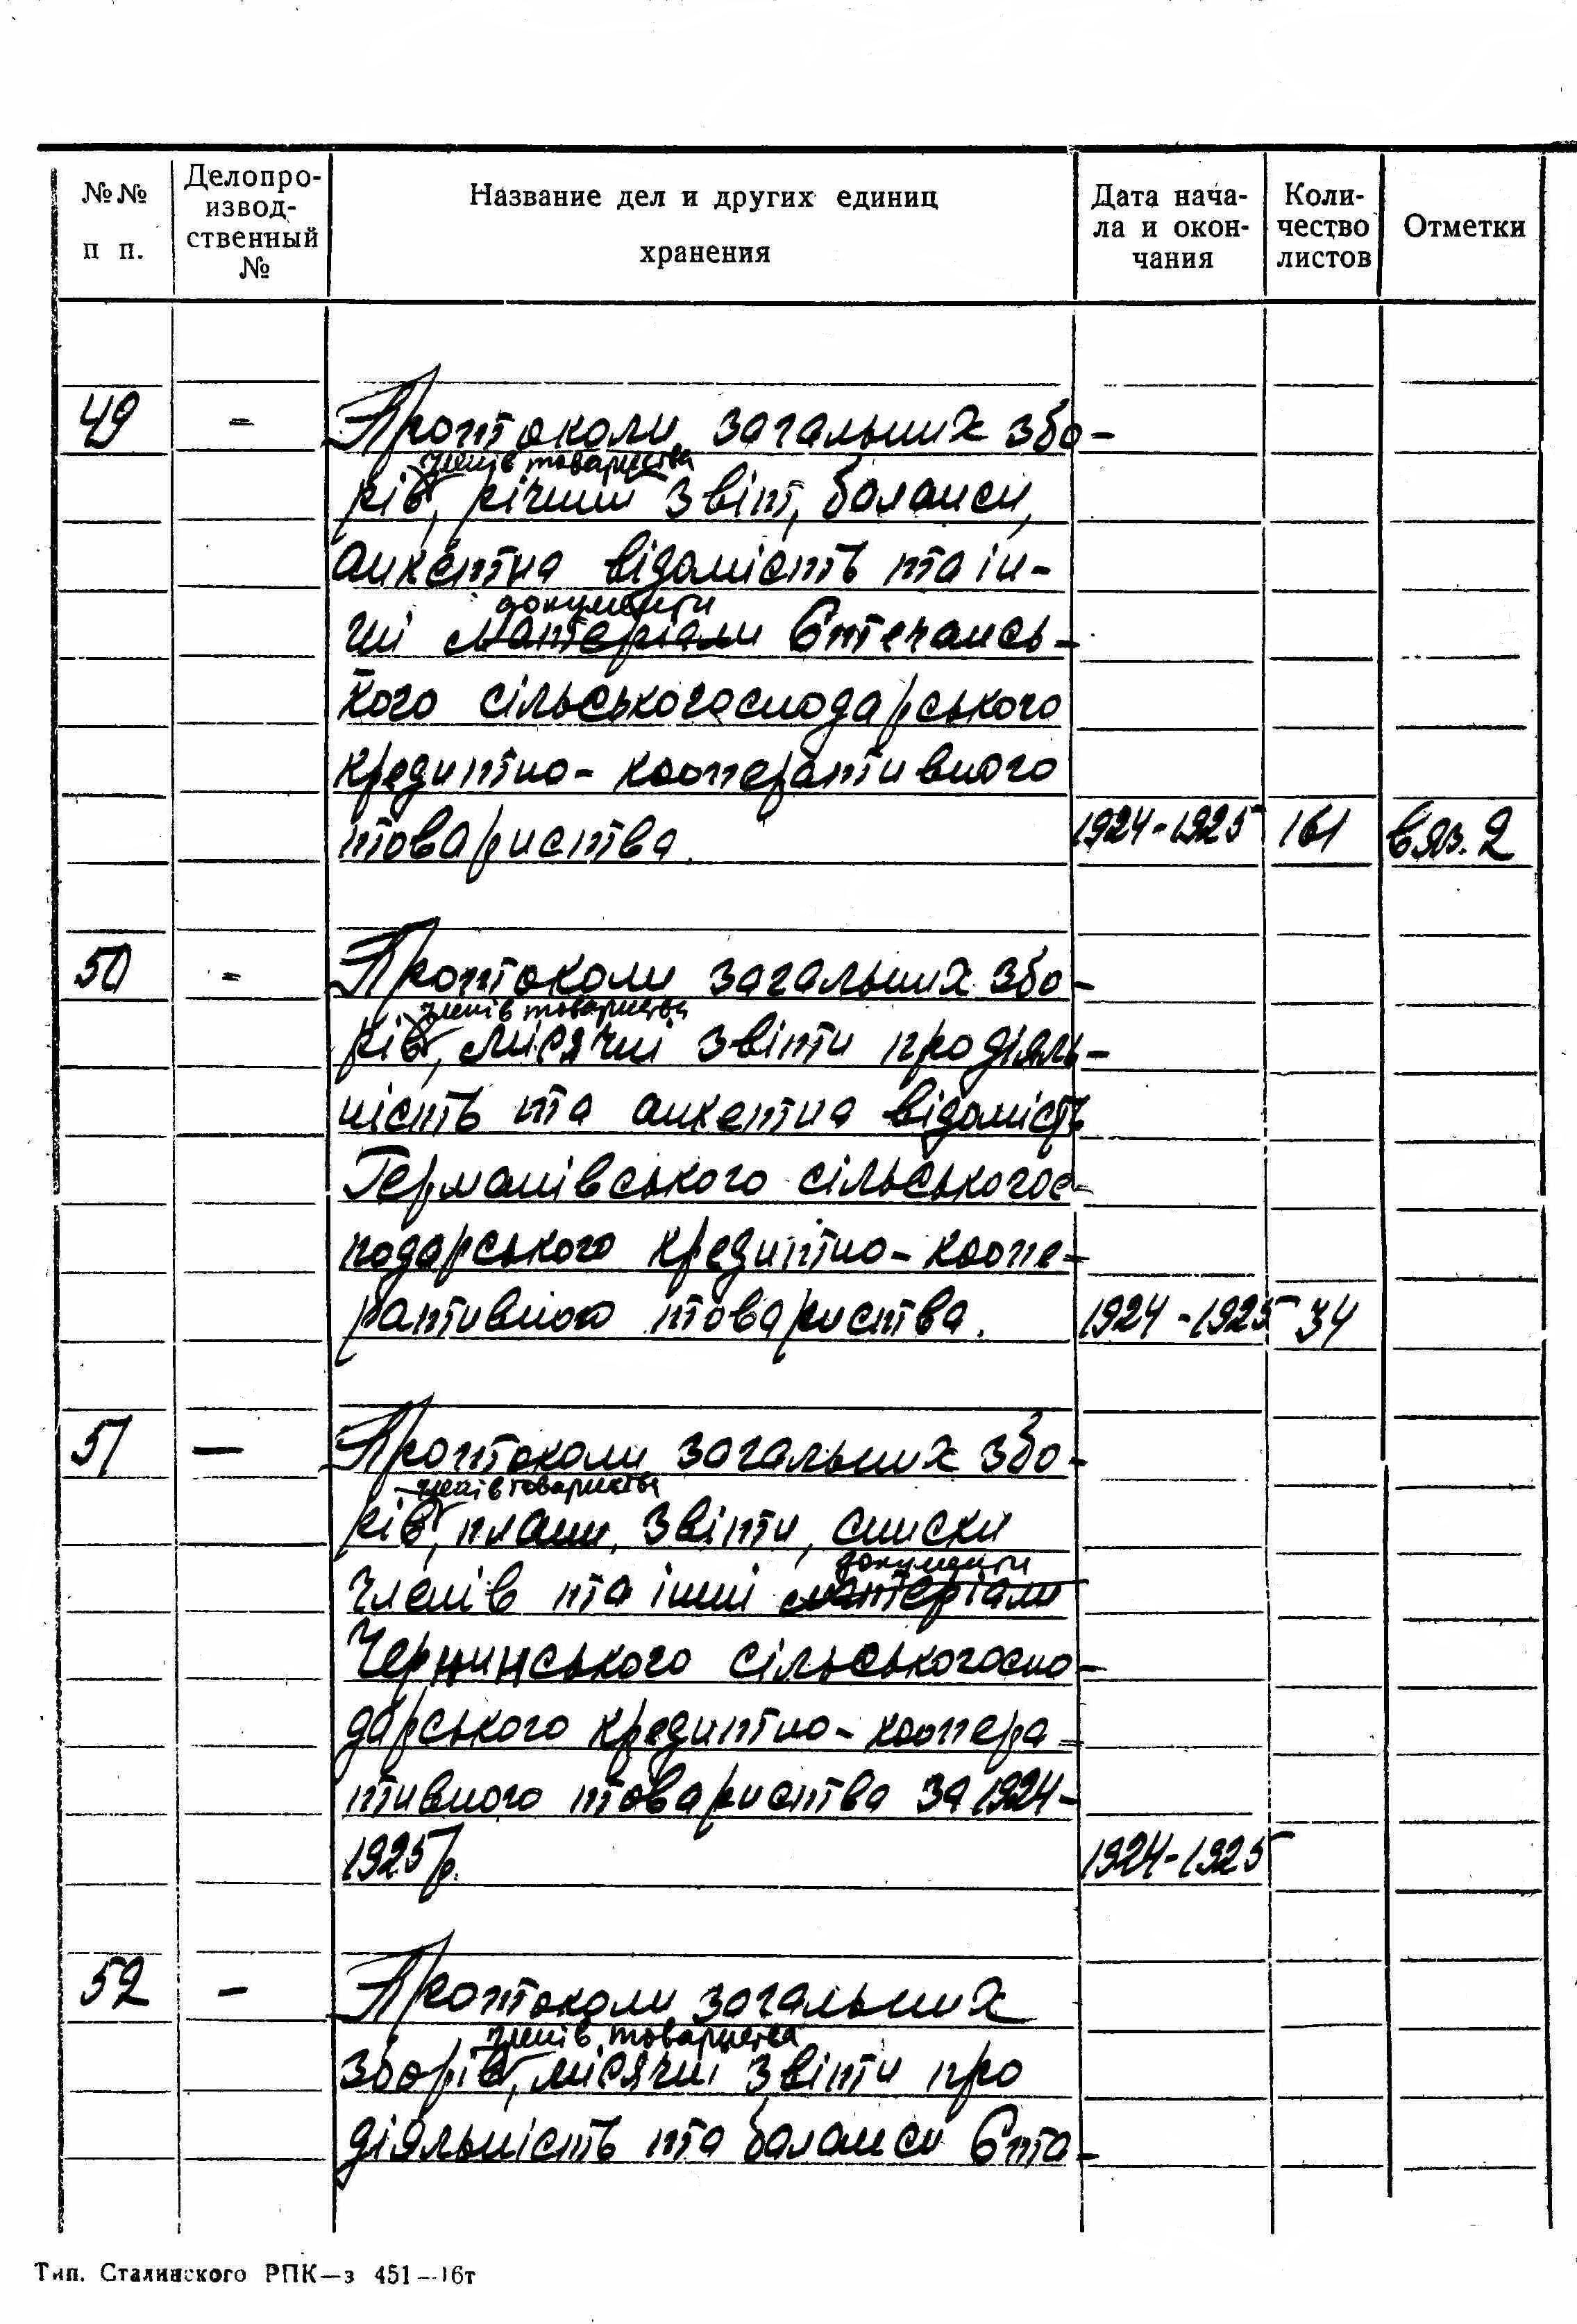 №№ п п.
Делопро-
извод-
ственный
№
Название дел и других единиц
хранения
Дата нача-
ла и окон-
чания
Коли-
чество
листов
Отметки
49 - Протоколи загальних збо-
членів товариства
рів, річний звіт, баланси,
анкетна відомість та ін-
документи
ші матеріали Степансь-
кого сільськогосподарського
кредитно-кооперативного
товариства. 1924-1925 161 вяз. 2
50 - Протоколи загальних збо-
членів товариства
рів, місячні звіти про діяль-
ність та анкетна відомість
Германівського сільськогос-
подарського кредитно-коопе-
ративного товариства. 1924-1925 34
51 — Протоколи загальних збо-
членів товариства
рів, плани, звіти, списки
документи
членів та інші матеріали
сільськогоспо-
дарського кредитно-коопера-
тивного товариства за 1924-
1925 р. 1924-1925
52 - Протоколи загальних
членів товариства
зборів, місячні звіти про
діяльність та баланси Ста-
Тип. Сталинского РПК—з 451—16т